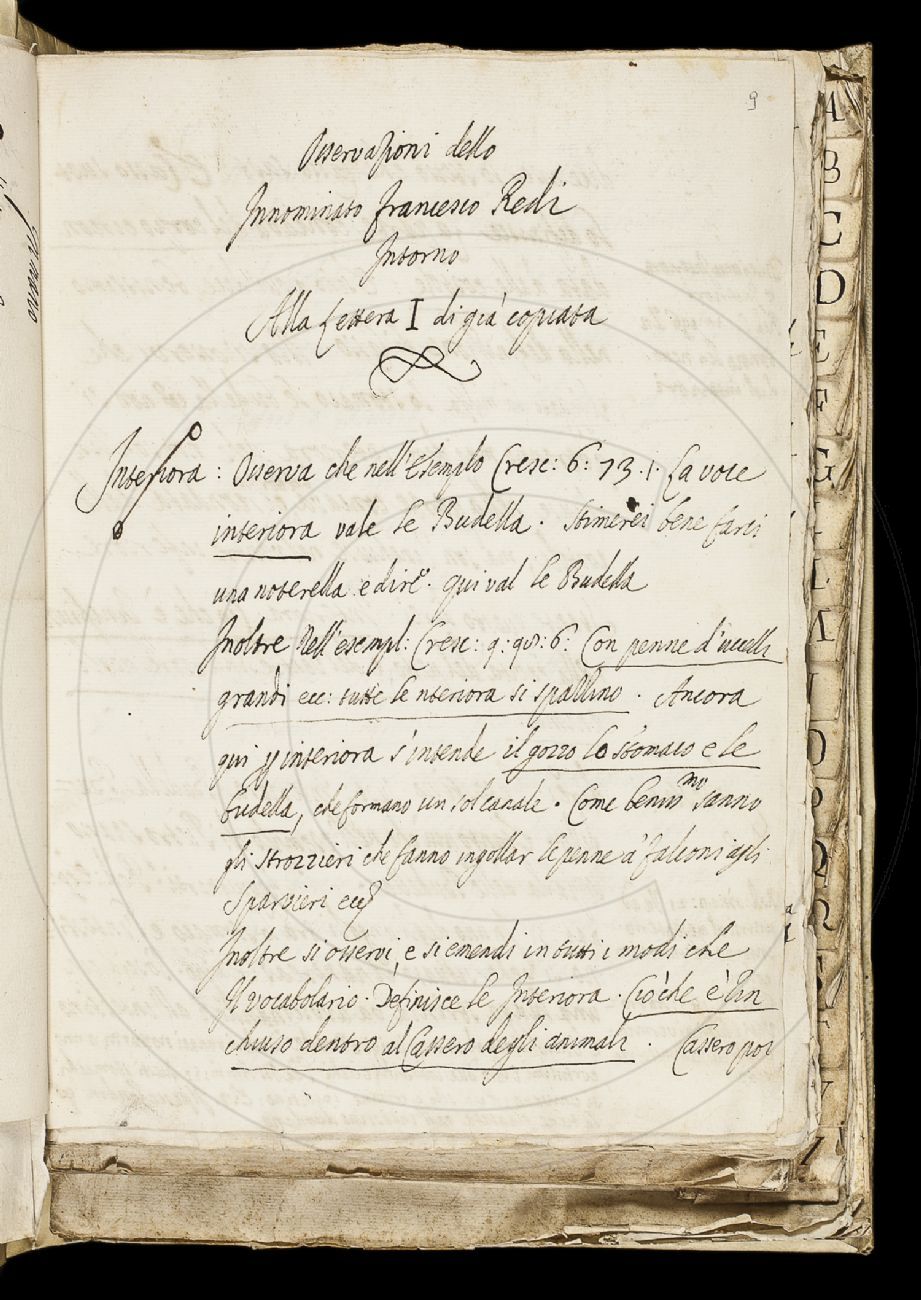 9
Osservazioni dello
Innominato Francesco Redi
Intorno
Alla Lettera I di già copiata
Interiora : Osserva che nell'Esemplo Cresc: 6: 73.1. La voce
interiora vale le Budella. Stimerei bene farci
una noterella e dire. qui val le Budella
Inoltre Nell'esempl: Cresc: 9: 98: 6: Con penne d'uccelli
grandi ecc: tutte le nteriora si spallino. Ancora
qui p interiora s'intende il gozzo lo stomaco e le
budella, che formano un sol canale. Come beniss.mo sanno
gli strozzieri che fanno ingollar le penne a' falconi agli
Sparvieri ecc
Inoltre si osservi, e si emendi in tutti i modi che
Il vocabolario. Definisce le Interiora. Ciò che è Rin
chiuso dentro al Cassero degli animali. Cassero poi
A
B
C
D
E
F
G
I
L
M
N
O
P
Q
R
S
T
V
Z